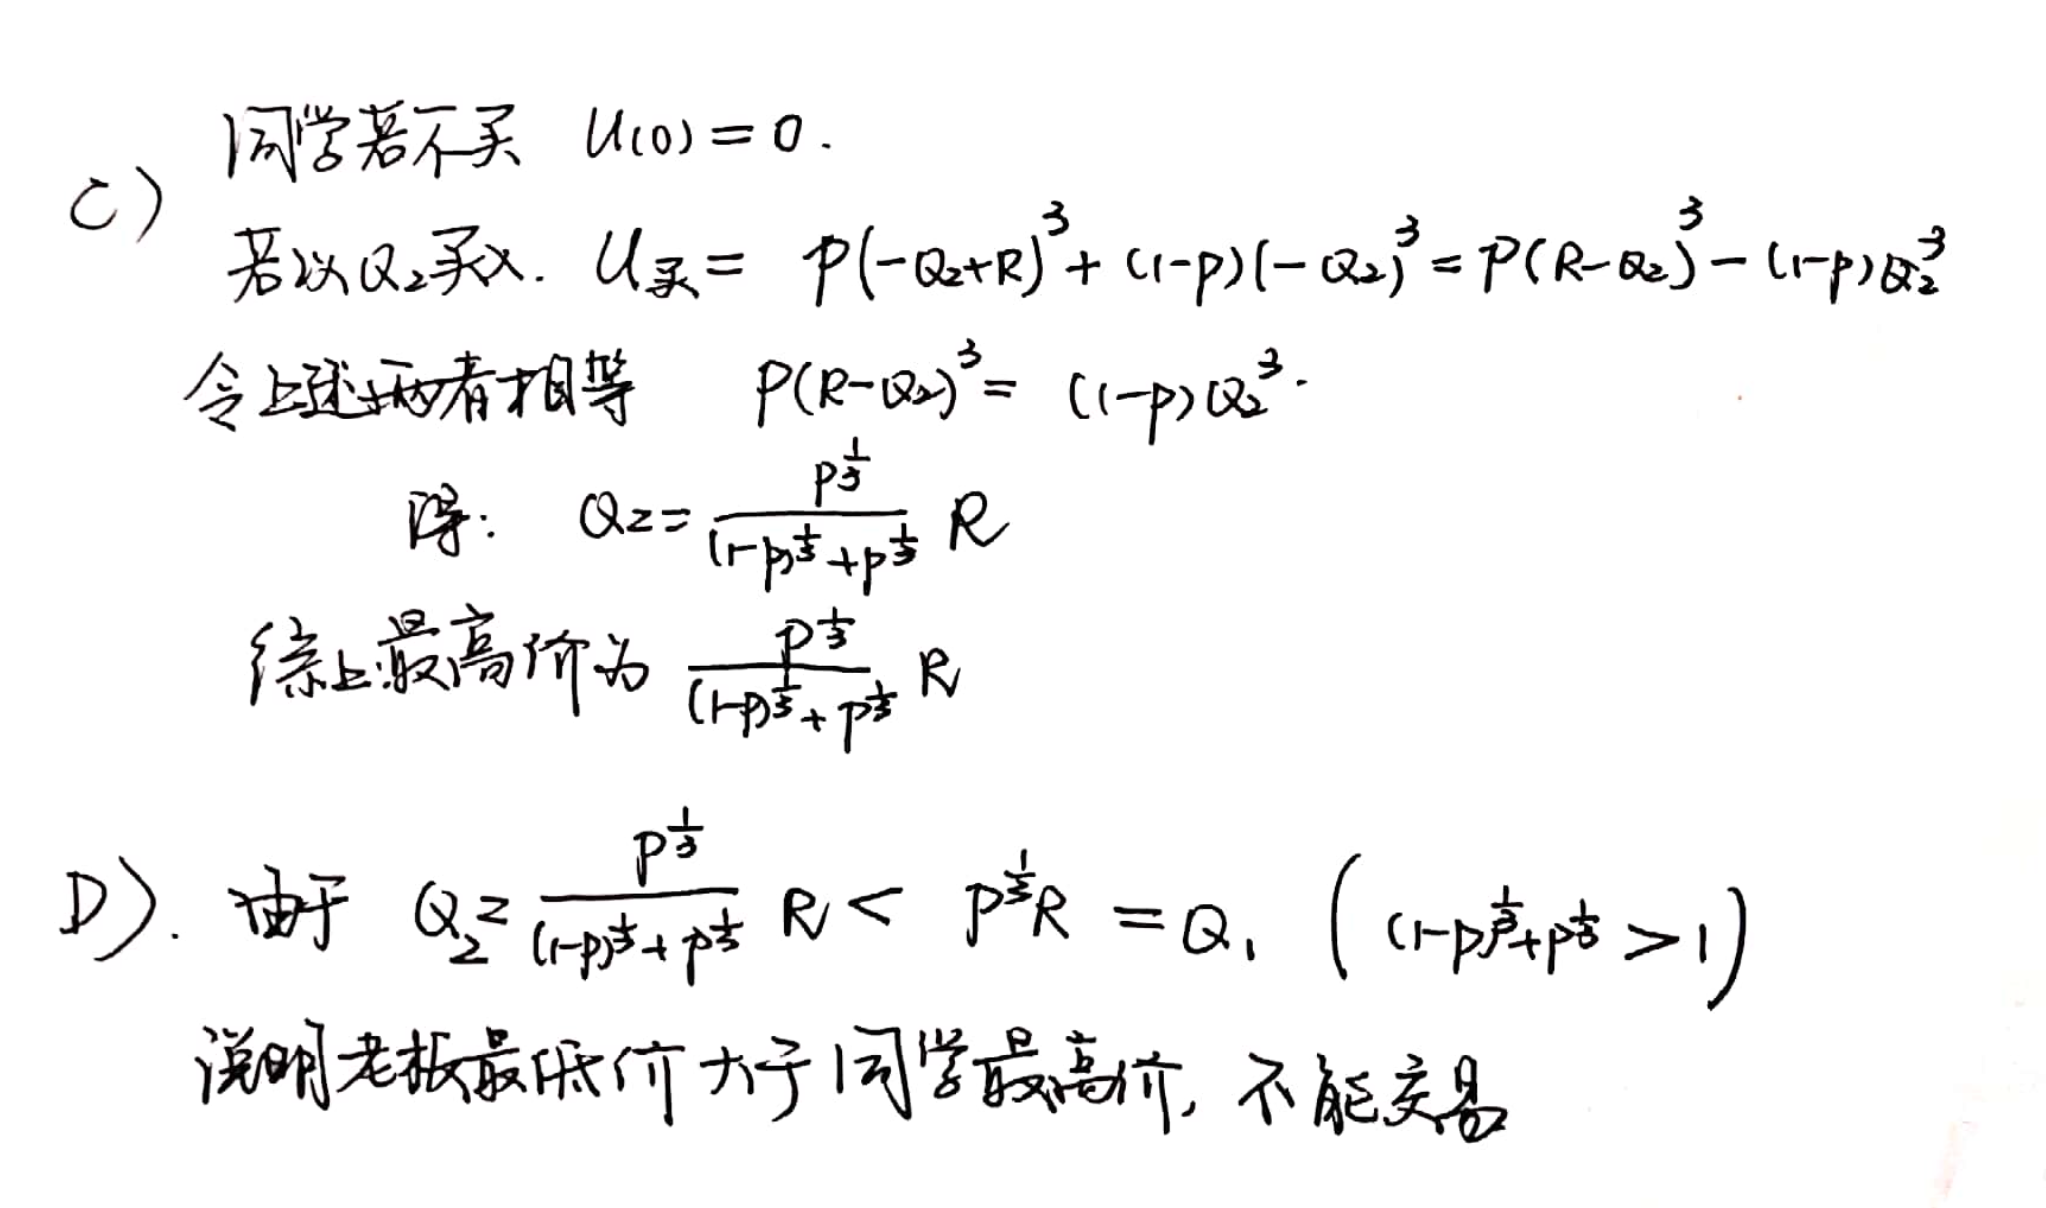 同学若不买 U(0) = 0.
C)
若以Q₂买入. U买 = p(-Q₂+R)³ + (1-p)(-Q₂)³ = p(R-Q₂)³ - (1-p)Q₂³
令上述两者相等 p(R-Q₂)³ = (1-p)Q₂³.
得: Q₂ = p^{1/3} / ((1-p)^{1/3} + p^{1/3}) R
综上最高价为 p^{1/3} / ((1-p)^{1/3} + p^{1/3}) R
D). 由于 Q₂ = p^{1/3} / ((1-p)^{1/3} + p^{1/3}) R < p^{1/3}R = Q₁ ((1-p)^{1/3} + p^{1/3} > 1)
说明老板最低价大于同学最高价, 不能交易